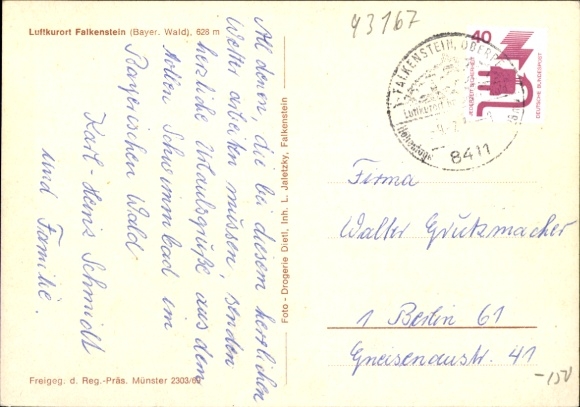 Luftkurort Falkenstein (Bayer. Wald), 628 m
All denen, die bei diesem herrlichen
Wetter arbeiten müssen, senden
herzliche Urlaubsgrüße aus dem
Schwimmbad im
Bayerischen Wald
Karl-Heinz Schmidt
und Familie.
Freigeg. d. Reg.-Präs. Münster 2303/69
Foto - Drogerie Dietl, Inh. L. Jaletzky, Falkenstein
43167
FALKENSTEIN, OBERPF
Luftkurort
8411
40
JEDERZEIT SICHERHEIT
DEUTSCHE BUNDESPOST
Firma
Walter Grützmacher
1 Berlin 61
Gneisenaustr. 41
-150